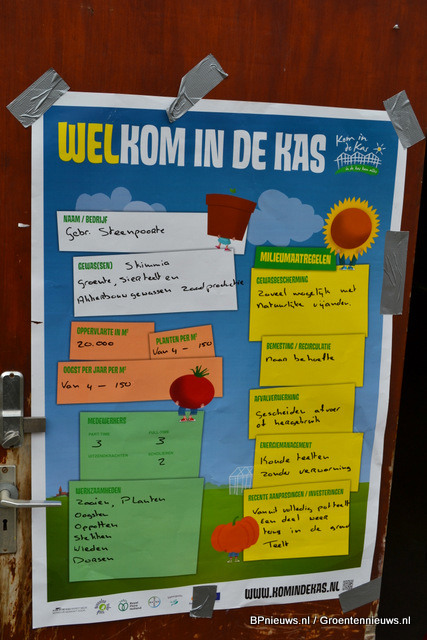 WELKOM IN DE KAS
Kom in
de Kas
NAAM / BEDRIJF
Gebr. Steenpoorte
GEWAS(SEN) Skimmia
Groente, Sierteelten
Akkerbouw gewassen Zaadproductie
OPPERVLAKTE IN M²
20.000
PLANTEN PER M²
Van 4 - 150
OOGST PER JAAR PER M²
Van 4 - 150
MEDEWERKERS
PART-TIME
3
FULL-TIME
3
SCHOLIEREN
2
WERKZAAMHEDEN
Zaaien, Planten
Oogsten
Oppotten
Stekken
Wieden
Dorsen
MILIEUMAATREGELEN
GEWASBESCHERMING
Zoveel mogelijk met
Natuurlijke vijanden.
BEMESTING / RECIRCULATIE
Naar behoefte
AFVALVERWERKING
Gescheiden afvoer
of hergebruik
ENERGIEMANAGEMENT
Koude teelten
Zonder verwarming
RECENTE AANPASSINGEN / INVESTERINGEN
Vanuit volledig potteelt
een deel weer
terug in de grond
Teelt
WWW.KOMINDEKAS.NL
BPnieuws.nl / Groentennieuws.nl